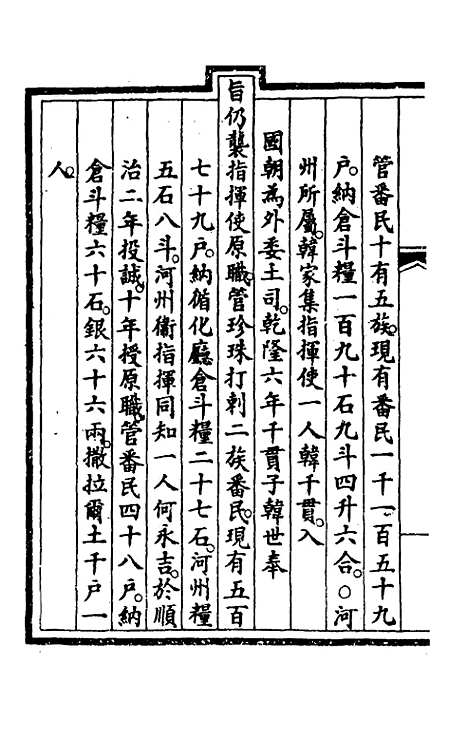 管番民十有五族。現有番民一千一百五十九
戶。納倉斗糧一百九十石九斗四升六合。○河
州所屬。韓家集指揮使一人韓千貫。入
國朝為外委土司。乾隆六年千貫子韓世奉
旨仍襲指揮使原職。管珍珠打剌二族番民。現有五百
七十九戶。納循化廳倉斗糧二十七石。河州糧
五石八斗。河州衞指揮同知一人何永吉。於順
治二年投誠。十年授原職。管番民四十八戶。納
倉斗糧六十石。銀六十六兩。撒拉爾土千戶一
人。